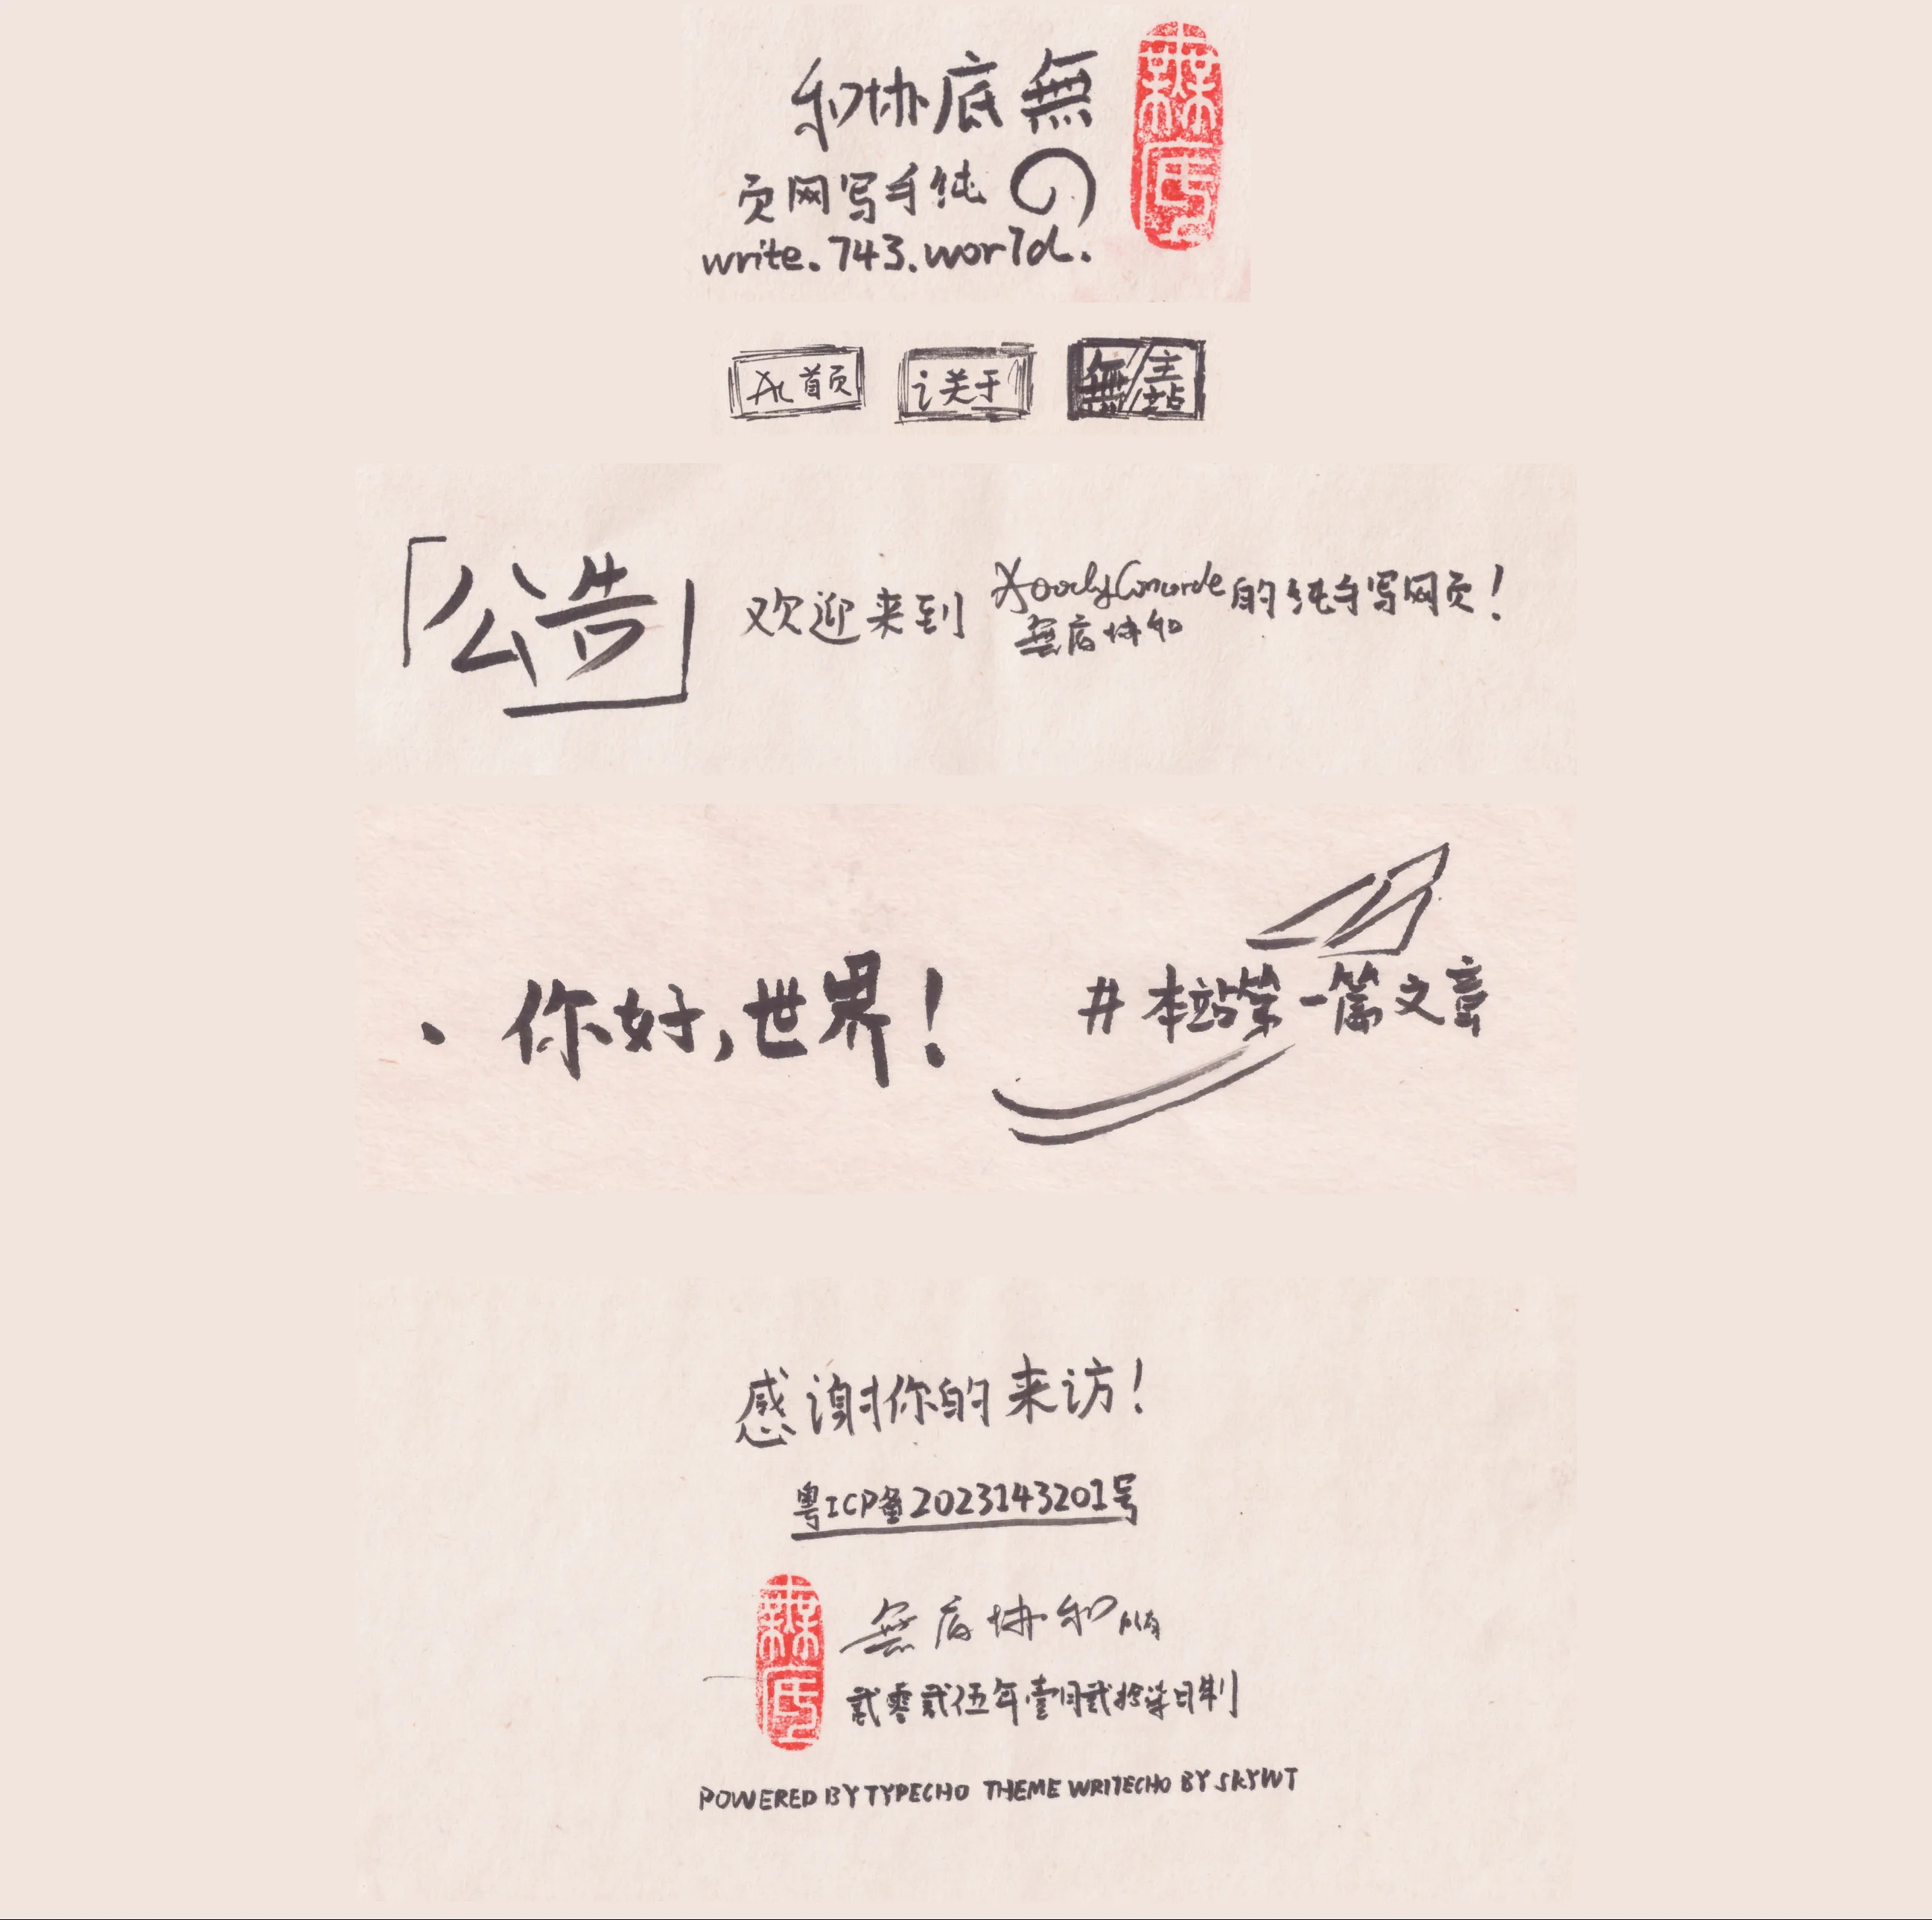 無底协和
の纯手写网页
write.743.world.
無底
首页
关于
無/主站
「公告」
欢迎来到 XoodyConcorde 的纯手写网页！
無底协和
· 你好，世界！
# 本站第一篇文章
感谢你的来访！
粤ICP备2023143201号
無底
無底协和
贰零贰伍年壹月贰拾柒日制
POWERED BY TYPECHO THEME WRITECHO BY SKYWT